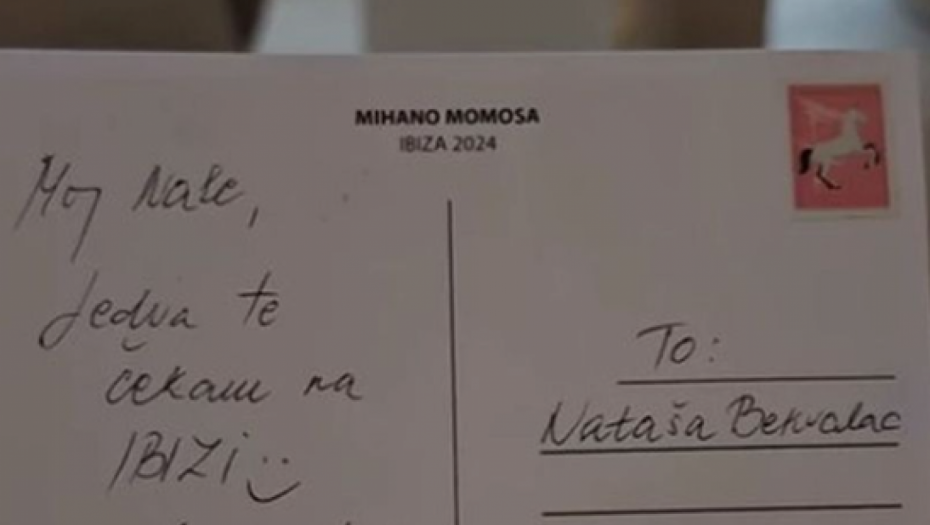 MIHANO MOMOSA
IBIZA 2024
Moj Nale,
Jedva te
čekam na
IBIZi
To:
Nataša Bekvalac